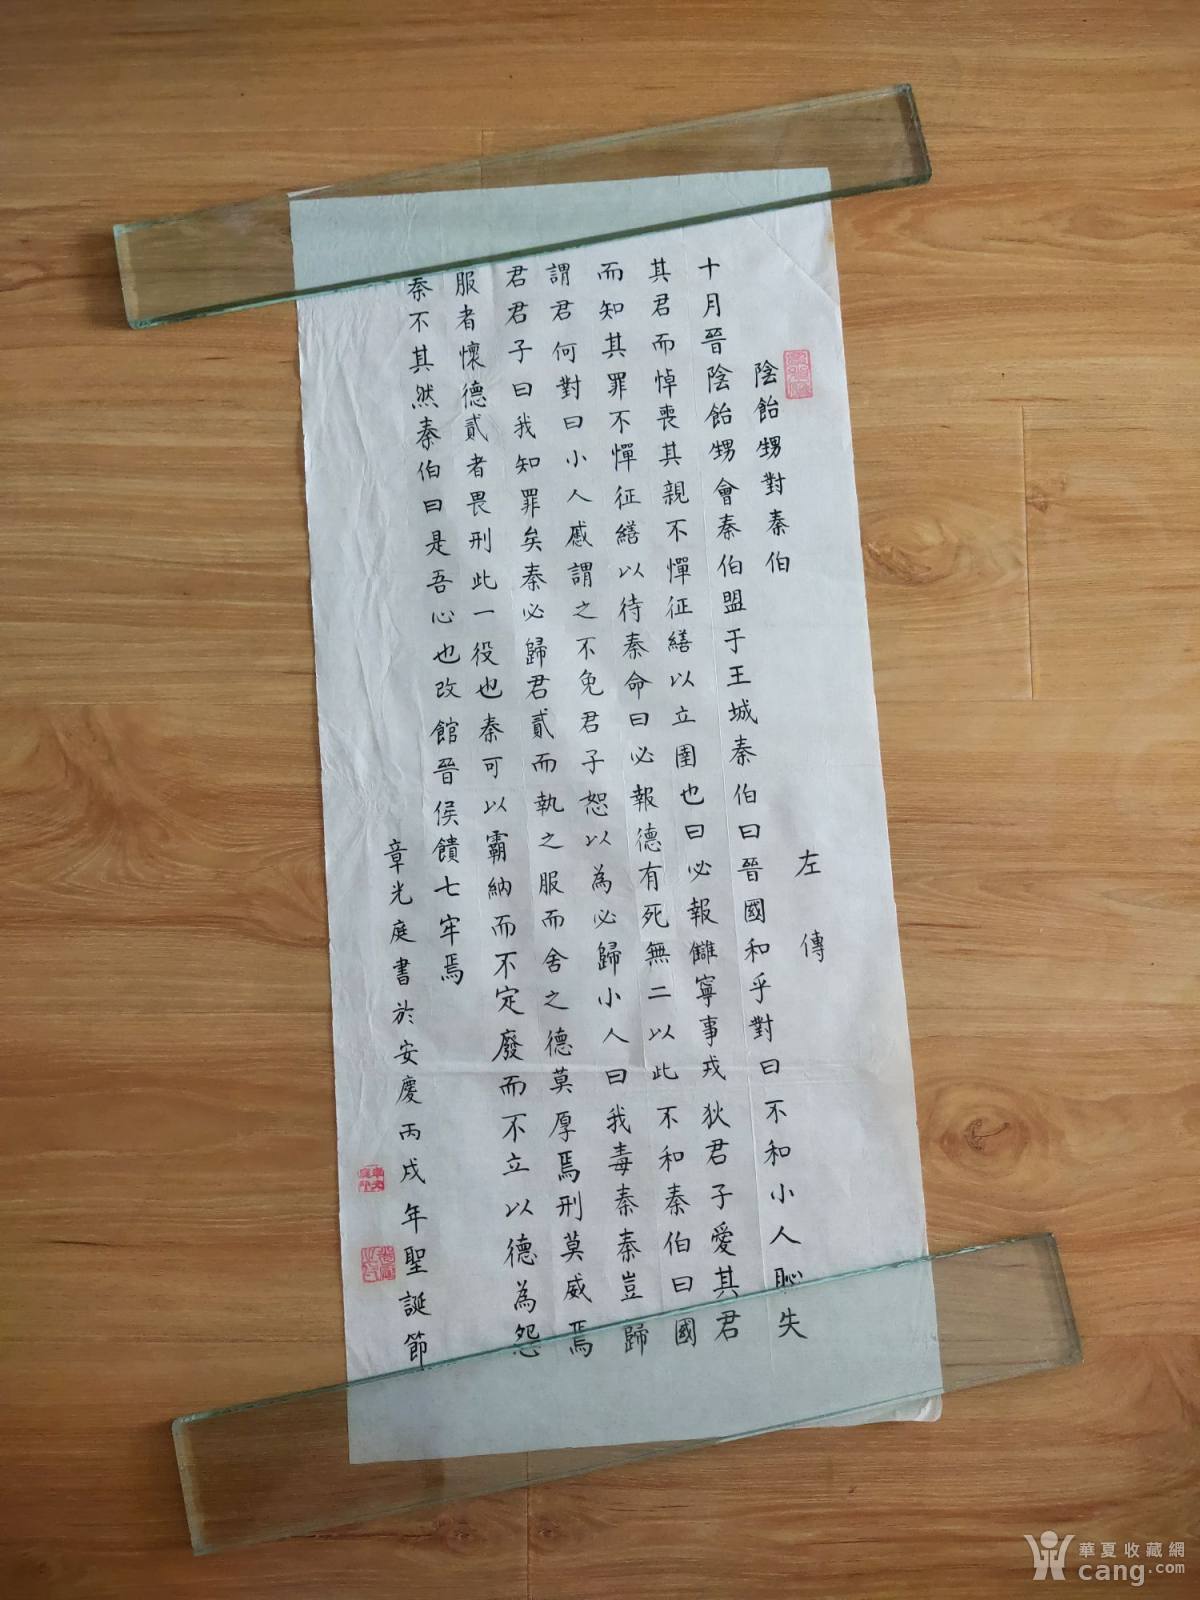 陰飴甥對秦伯
左傳
十月晉陰飴甥會秦伯盟于王城秦伯曰晉國和乎對曰不和小人恥失
其君而悼喪其親不憚征繕以立圉也曰必報讎寧事戎狄君子愛其君
而知其罪不憚征繕以待秦命曰必報德有死無二以此不和秦伯曰國
謂君何對曰小人慼謂之不免君子恕以為必歸小人曰我毒秦秦豈歸
君君子曰我知罪矣秦必歸君貳而執之服而舍之德莫厚焉刑莫威焉
服者懷德貳者畏刑此一役也秦可以霸納而不定廢而不立以德為怨
秦不其然秦伯曰是吾心也改館晉侯饋七牢焉
章光庭書於安慶丙戌年聖誕節
華夏收藏網
cang.com